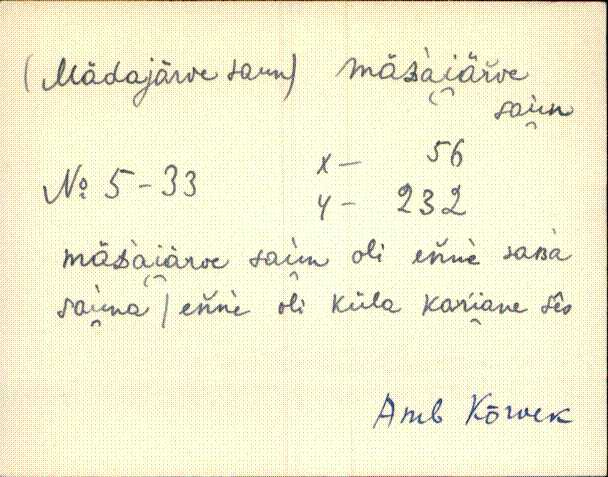 (Mädajärve saun) mäᴅ̀ài̯är̆ve
sau̯n
№ 5-33 x — 56
y — 232
mäᴅ̀ài̯ärve sau̯n oli en̆nè saʙà
sau̯na / en̆nè oli küla kari̯ane sê̬s
Amb Kõrvek